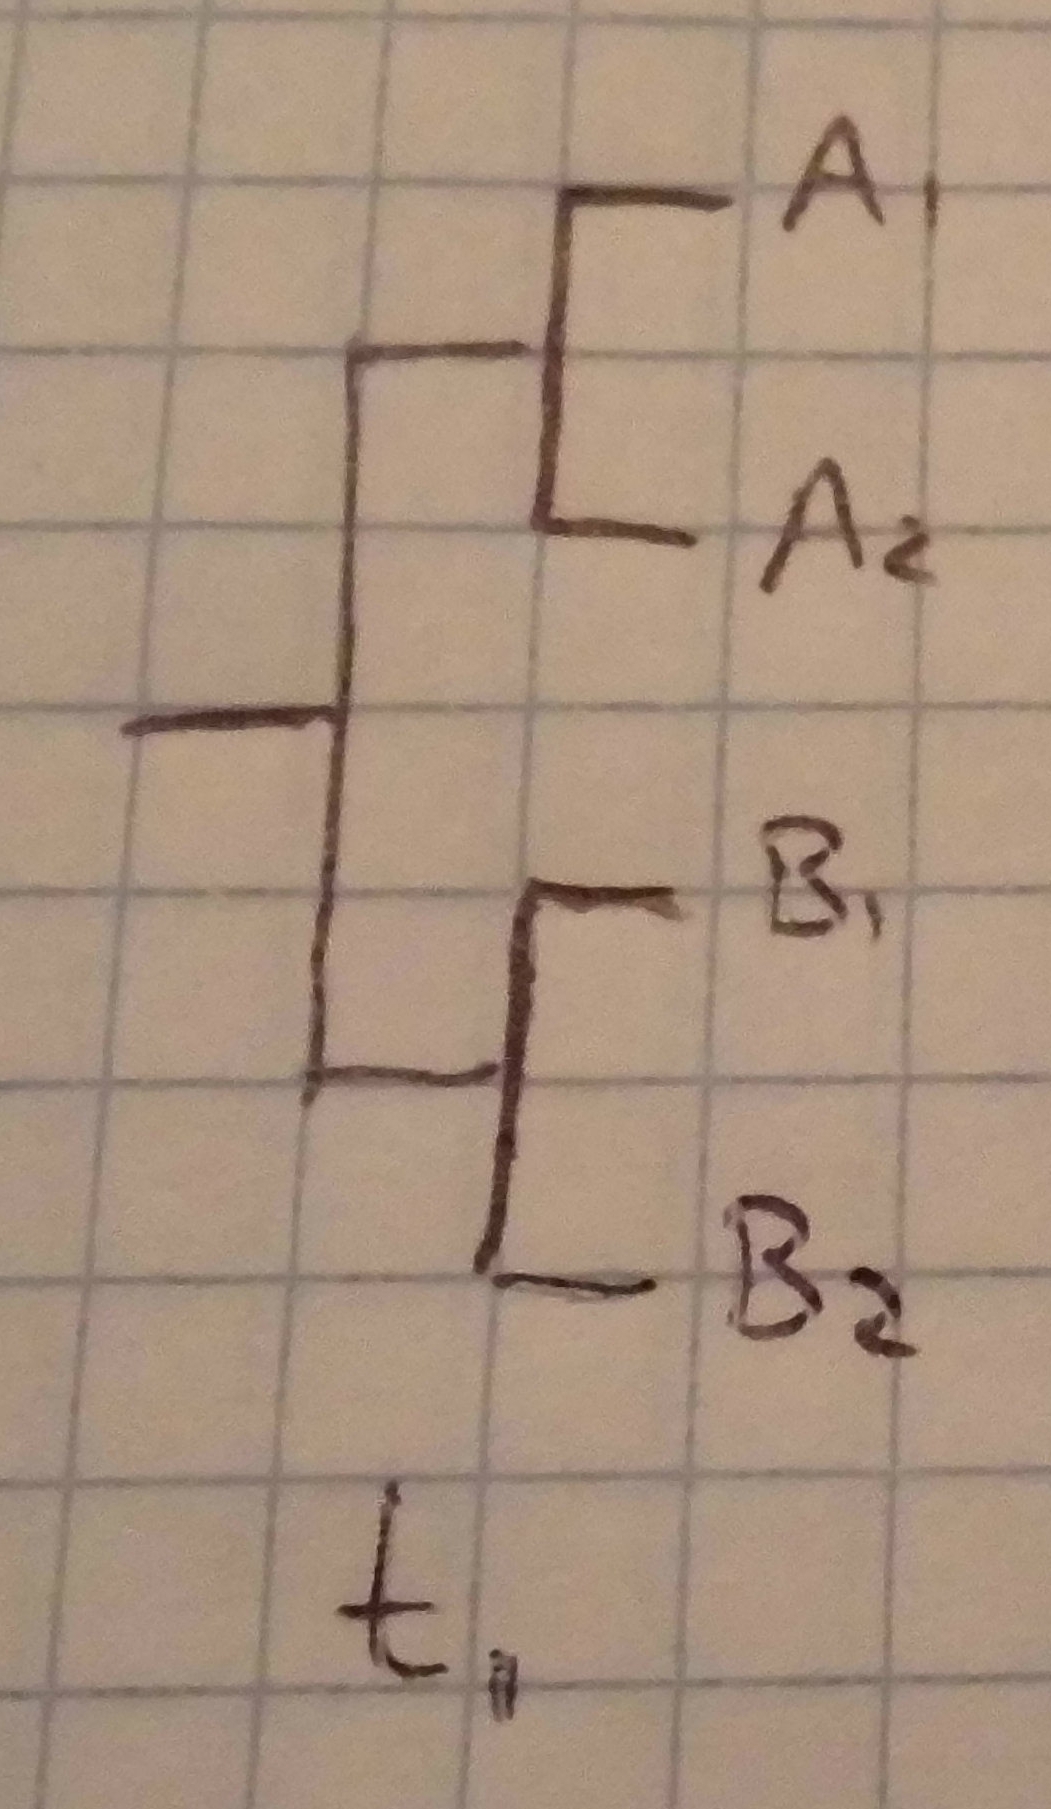 A₁
A₂
B₁
B₂
t₁₁